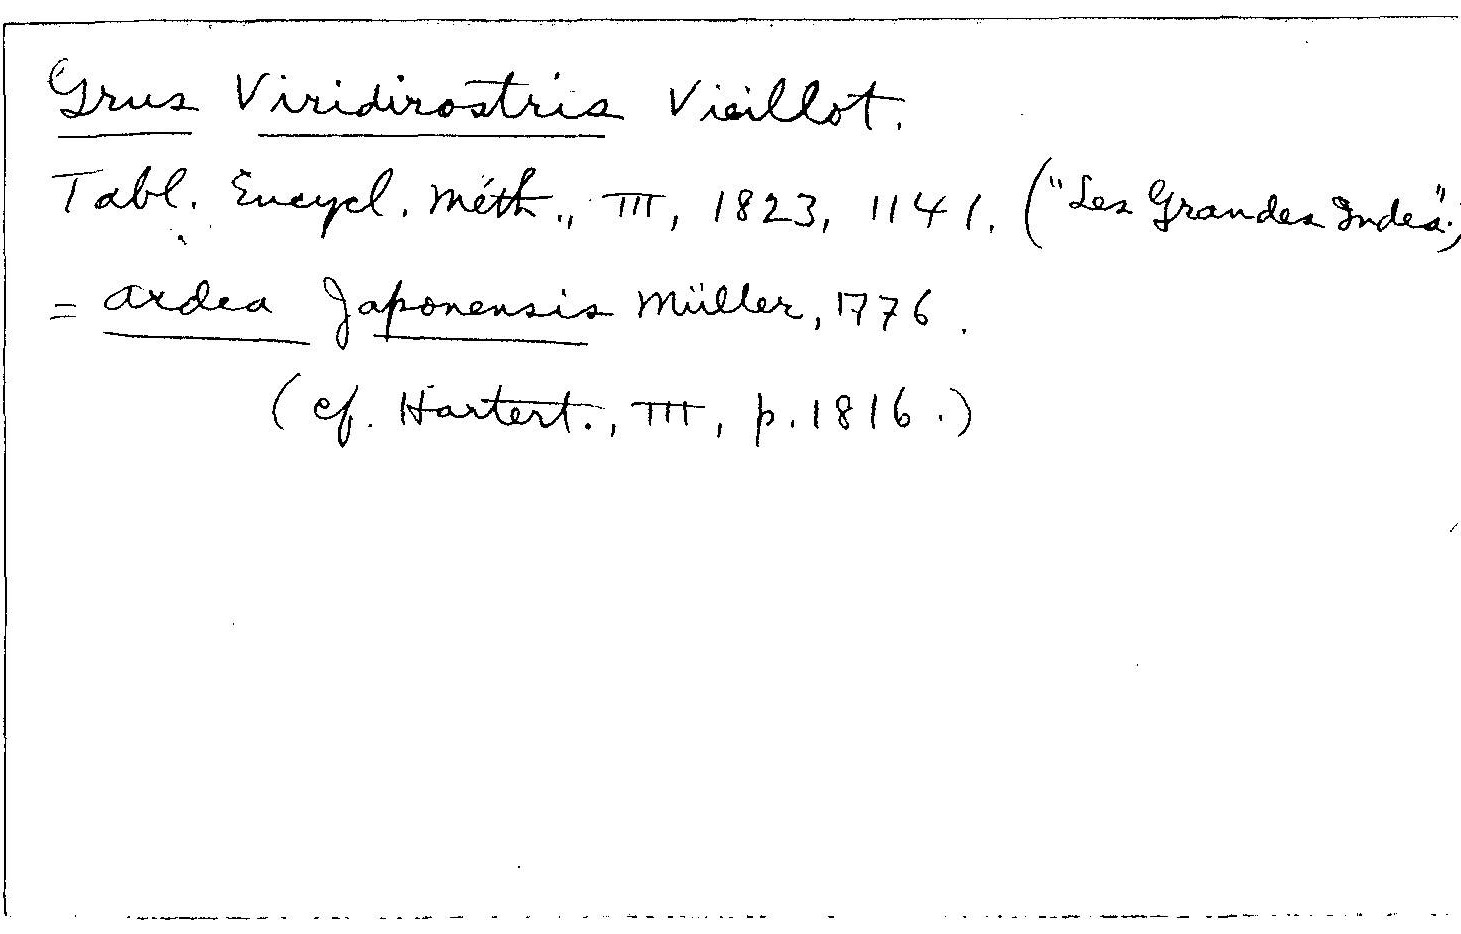 Grus Viridirostris Vieillot.
Tabl. Encycl. Méth., III, 1823, 1141. ("Les Grandes Indes".)
= Ardea Japonensis Müller, 1776.
(cf. Hartert., III, p. 1816.)